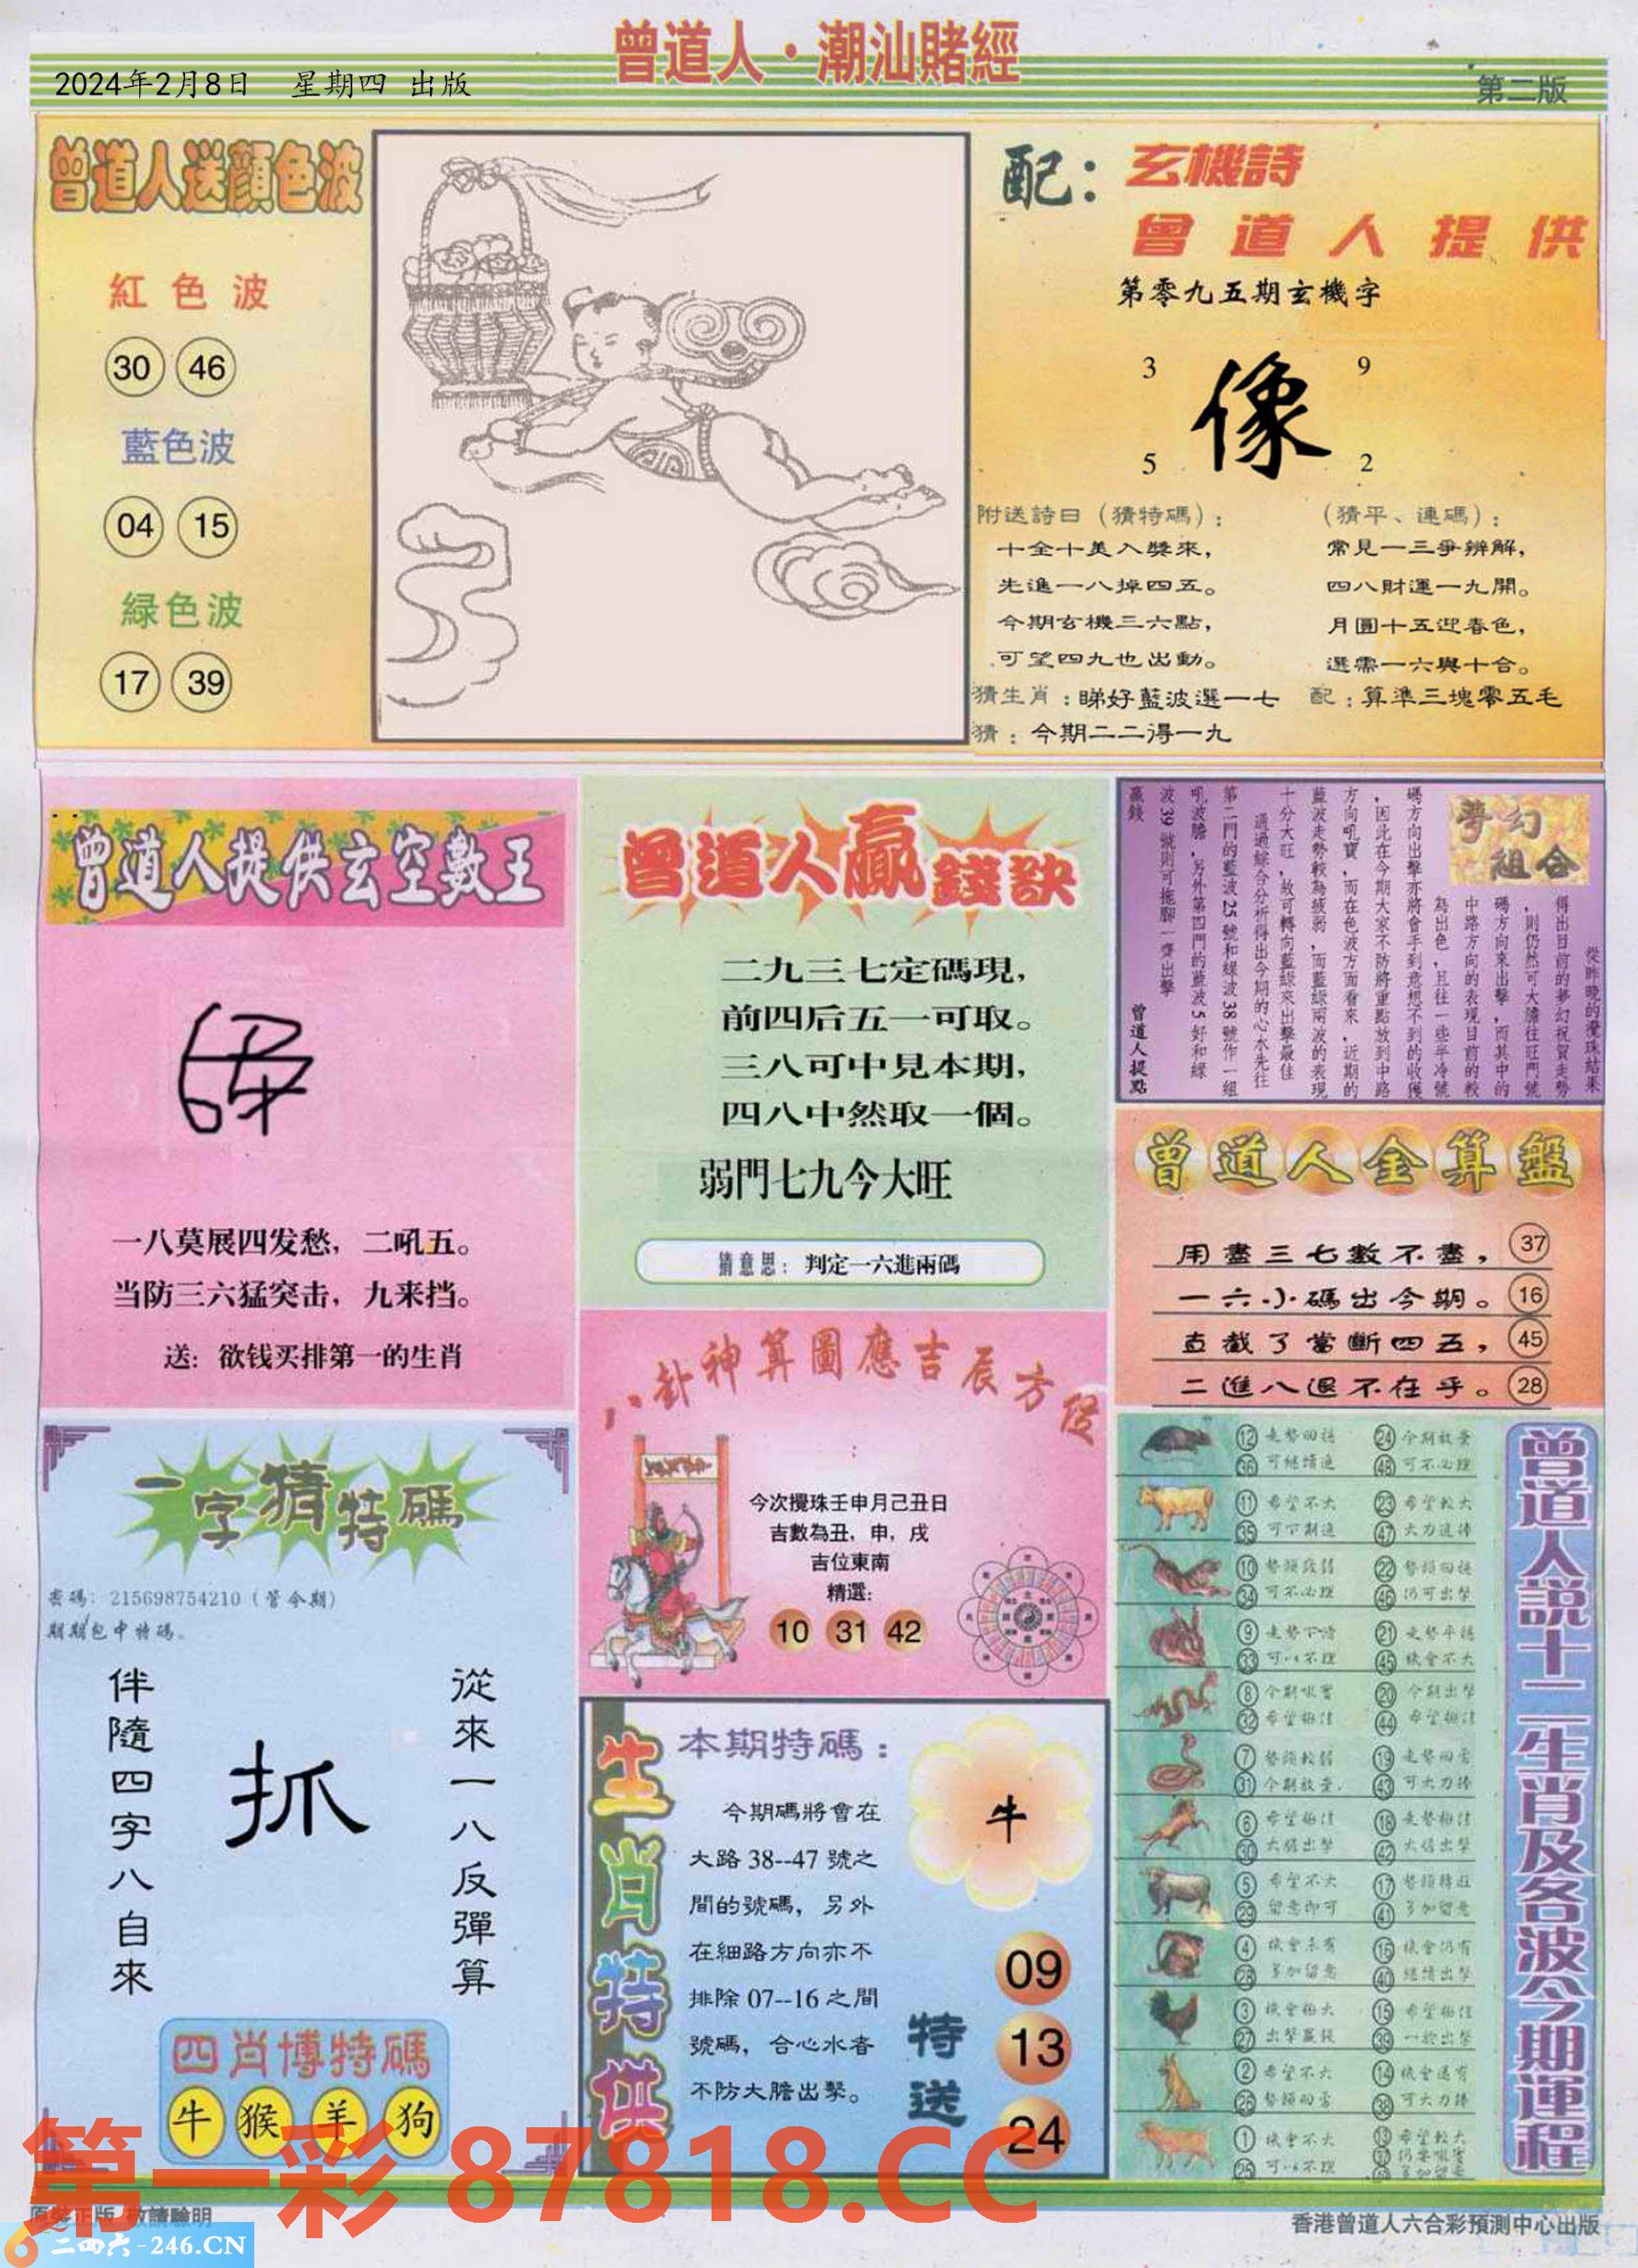 曾道人·潮汕賭經
2024年2月8日 星期四 出版
第二版
曾道人送顔色波
紅色波
30 46
藍色波
04 15
緑色波
17 39
配：玄機詩
曾道人提供
第零九五期玄機字
3 9
像
5 2
附送詩曰（猜特碼）：
十全十美入獎來，
先進一八掉四五。
今期玄機三六點，
可望四九也出動。
（猜平、連碼）：
常見一三爭辨解，
四八財運一九開。
月圓十五迎春色，
選需一六與十合。
猜生肖：睇好藍波選一七
配：算準三塊零五毛
猜：今期二二得一九
曾道人提供玄空數王
一八莫展四发愁，二吼五。
当防三六猛突击，九来挡。
送：欲钱买排第一的生肖
曾道人贏錢訣
二九三七定碼現，
前四后五一可取。
三八可中見本期，
四八中然取一個。
弱門七九今大旺
猜意思：判定一六進兩碼
夢幻組合
從昨晚的攪珠結果
得出目前的夢幻祝賀走勢
，則仍然可大膽往旺門號
碼方向來出擊，而其中的
中路方向的表現目前的較
為出色，且往一些半冷號
碼方向出擊亦將會手到意想不到的收獲
，因此在今期大家不防將重點放到中路
方向吼寶，而在色波方面看來，近期的
藍波走勢較為疲弱，而藍綠兩波的表現
十分大旺，故可轉向藍綠來出擊最佳
通過綜合分析得出今期的心水先往
第二門的藍波25號和綠波38號作一組
吼波膽，另外第四門的藍波5好和綠
波39號則可拖腳一齊出擊
贏錢
曾道人提點
曾道人金算盤
用盡三七數不盡，37
一六小碼出今期。16
直截了當斷四五，45
二進八退不在乎。28
八卦神算圖應吉辰方從
今次攪珠壬申月己丑日
吉數為丑，申，戌
吉位東南
精選：
10 31 42
一字猜特碼
密碼：215698754210（管今期）
期期包中特碼。
從來一八反彈算
抓
伴隨四字八自來
四肖博特碼
牛 猴 羊 狗
生肖特供
本期特碼：
今期碼將會在
大路38--47號之
間的號碼，另外
在細路方向亦不
排除07--16之間
號碼，合心水者
不防大膽出擊。
牛
特送
09
13
24
曾道人說十二生肖及各波今期運程
12 走勢回穩 24 今期放棄
36 可繼續追 48 可不必理
11 希望不大 23 希望較大
35 可下期追 47 大力追捧
10 勢頭致弱 22 勢頭回穩
34 可不必理 46 仍可出擊
9 走勢下滑 21 走勢平穩
33 可以不理 45 機會不大
8 今期吼實 20 今期出擊
32 希望極佳 44 希望極佳
7 勢頭較弱 19 走勢回勇
31 今期放棄 43 可大力捧
6 希望極佳 18 走勢極佳
30 大膽出擊 42 大膽出擊
5 希望不大 17 勢頭轉旺
29 留意即可 41 多加留意
4 機會未有 16 機會仍有
28 多加留意 40 繼續出擊
3 機會極大 15 希望極佳
27 出擊贏錢 39 一於出擊
2 希望不大 14 機會還有
26 勢頭回勇 38 可大力捧
1 機會不大 13 希望較大
25 可以不理
第一彩 87818.CC
原裝正版 敬請驗明
二四六-246.CN
香港曾道人六合彩預測中心出版